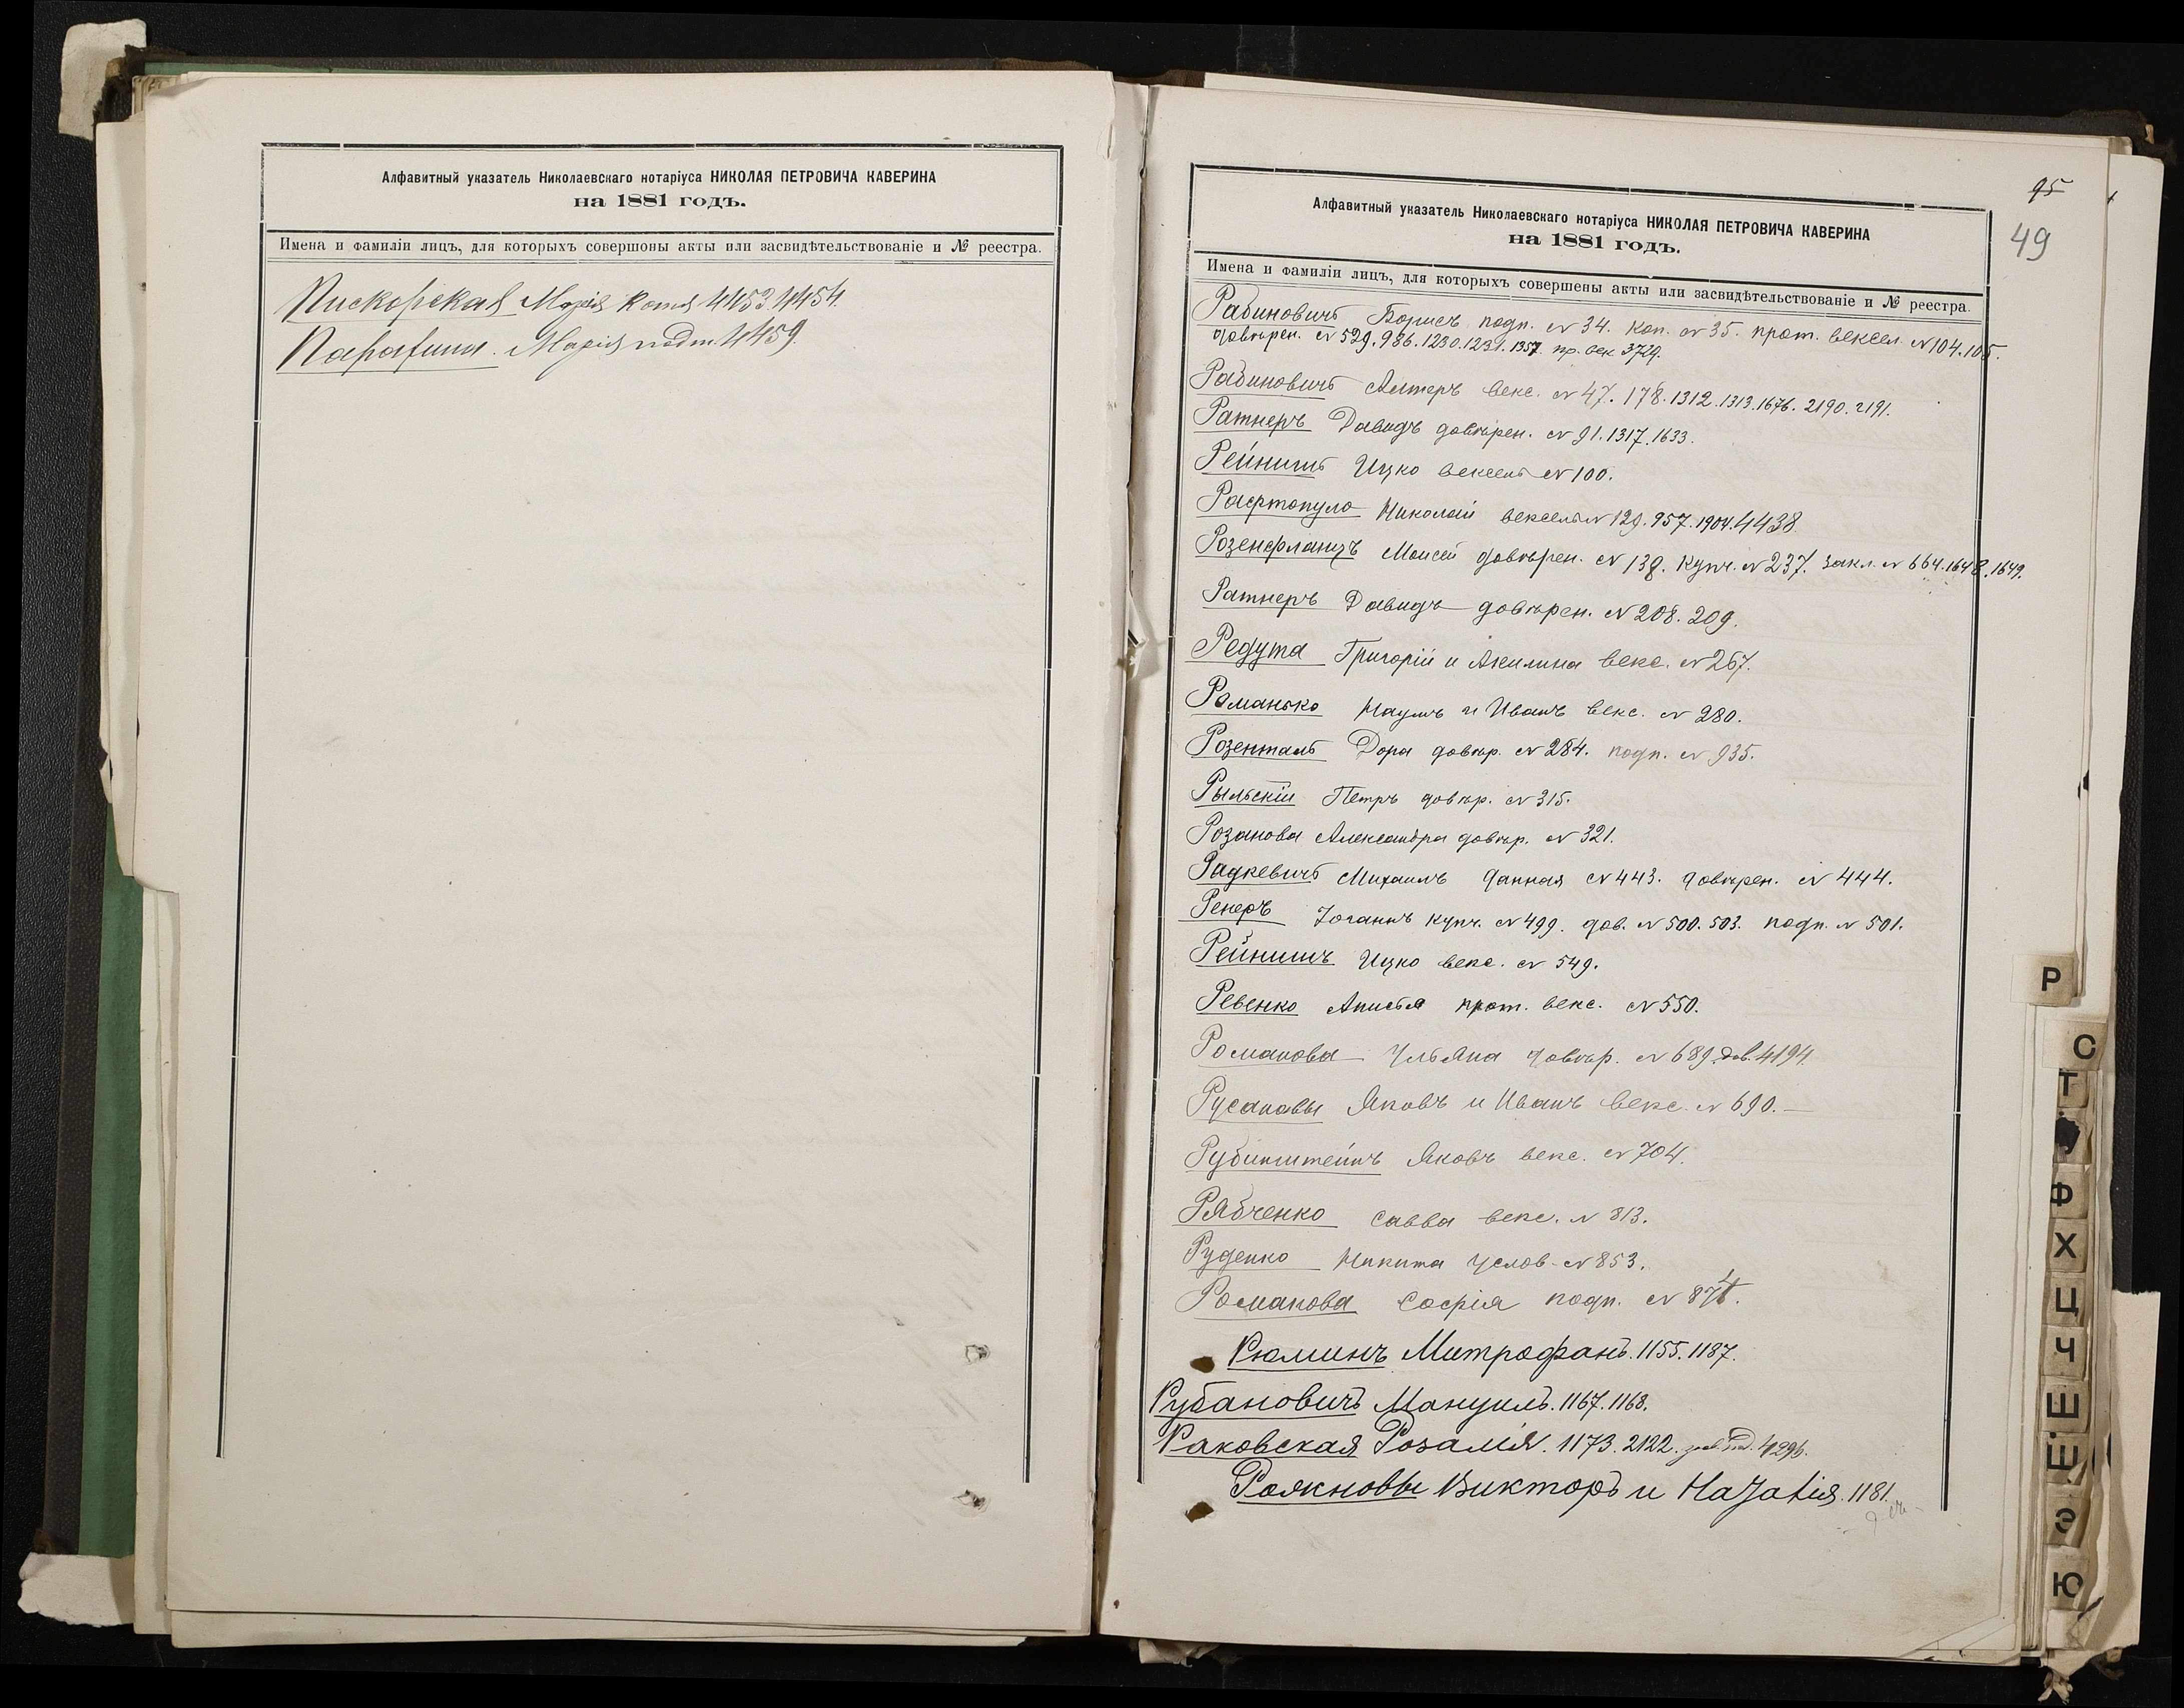 Алфавитный указатель Николаевскаго нотаріуса НИКОЛАЯ ПЕТРОВИЧА КАВЕРИНА
на 1881 годъ.
Имена и фамиліи лицъ, для которыхъ совершоны акты или засвидѣтельствованіе и № реестра.
Пискорская Марія копія 4453 4454.
Марія подп. 4459.
95
49
Алфавитный указатель Николаевскаго нотаріуса НИКОЛАЯ ПЕТРОВИЧА КАВЕРИНА
на 1881 годъ.
Имена и фамиліи лицъ, для которыхъ совершены акты или засвидѣтельствованіе и № реестра.
Рабиновичъ Борисъ подп. № 34. коп. № 35. прот. вексел. № 104. 105.
довѣрен. № 529. 986. 1230. 1231. 1357. пр. век 3729.
Рабиновичъ Алтеръ векс. № 47. 178. 1312. 1313. 1676. 2190. 2191.
Ратнеръ Давидъ довѣрен. № 91. 1317. 1633.
Рейнишъ Ицко вексель № 100.
Рафтопуло Николай вексель № 129. 957. 1904. 4438
Розенфланцъ Моисей довѣрен. № 139. купч. № 237. закл. № 664. 1648. 1649.
Ратнеръ Давидъ довѣрен. № 208. 209.
Редута Григорій и Акилина векс. № 267.
Романько Наумъ и Иванъ векс. № 280.
Розенталь Дора довѣр. № 284. подп. № 935.
Рыльскій Петръ довѣр. № 315.
Розанова Александра довѣр. № 321.
Радкевичъ Михаилъ данная № 443. довѣрен. № 444.
Іоганнъ купч. № 499. дов. № 500. 503. подп. № 501.
Рейнишъ Ицко векс. № 549.
Ревенко Анисья прот. векс. № 550.
Романова Ульяна довѣр. № 689. дов. 4194.
Русановы Яковъ и Иванъ векс. № 690.
Рубинштейнъ Яковъ векс. № 704.
Рябченко Савва векс. № 813.
Руденко Никита услов. № 853.
Романова Софія подп. № 874.
Рюминъ Митрофанъ. 1155. 1187.
Рубановичъ Мануилъ. 1167. 1168.
Раковская Розалія. 1173. 2122. 4296.
Виктор и 1181.
Р
С
Т
У
Ф
Х
Ц
Ч
Ш
Щ
Э
Ю